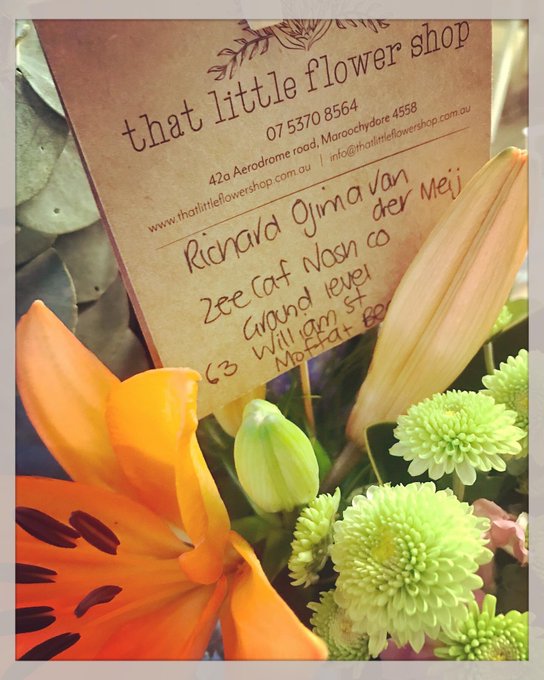 that little flower shop
07 5370 8564
42a Aerodrome road, Maroochydore 4558
www.thatlittleflowershop.com.au | info@thatlittleflowershop.com.au
Richard Ojima van
der Meij
Zee Caf Nosh co
Grand level
63 William St
Moffat Be